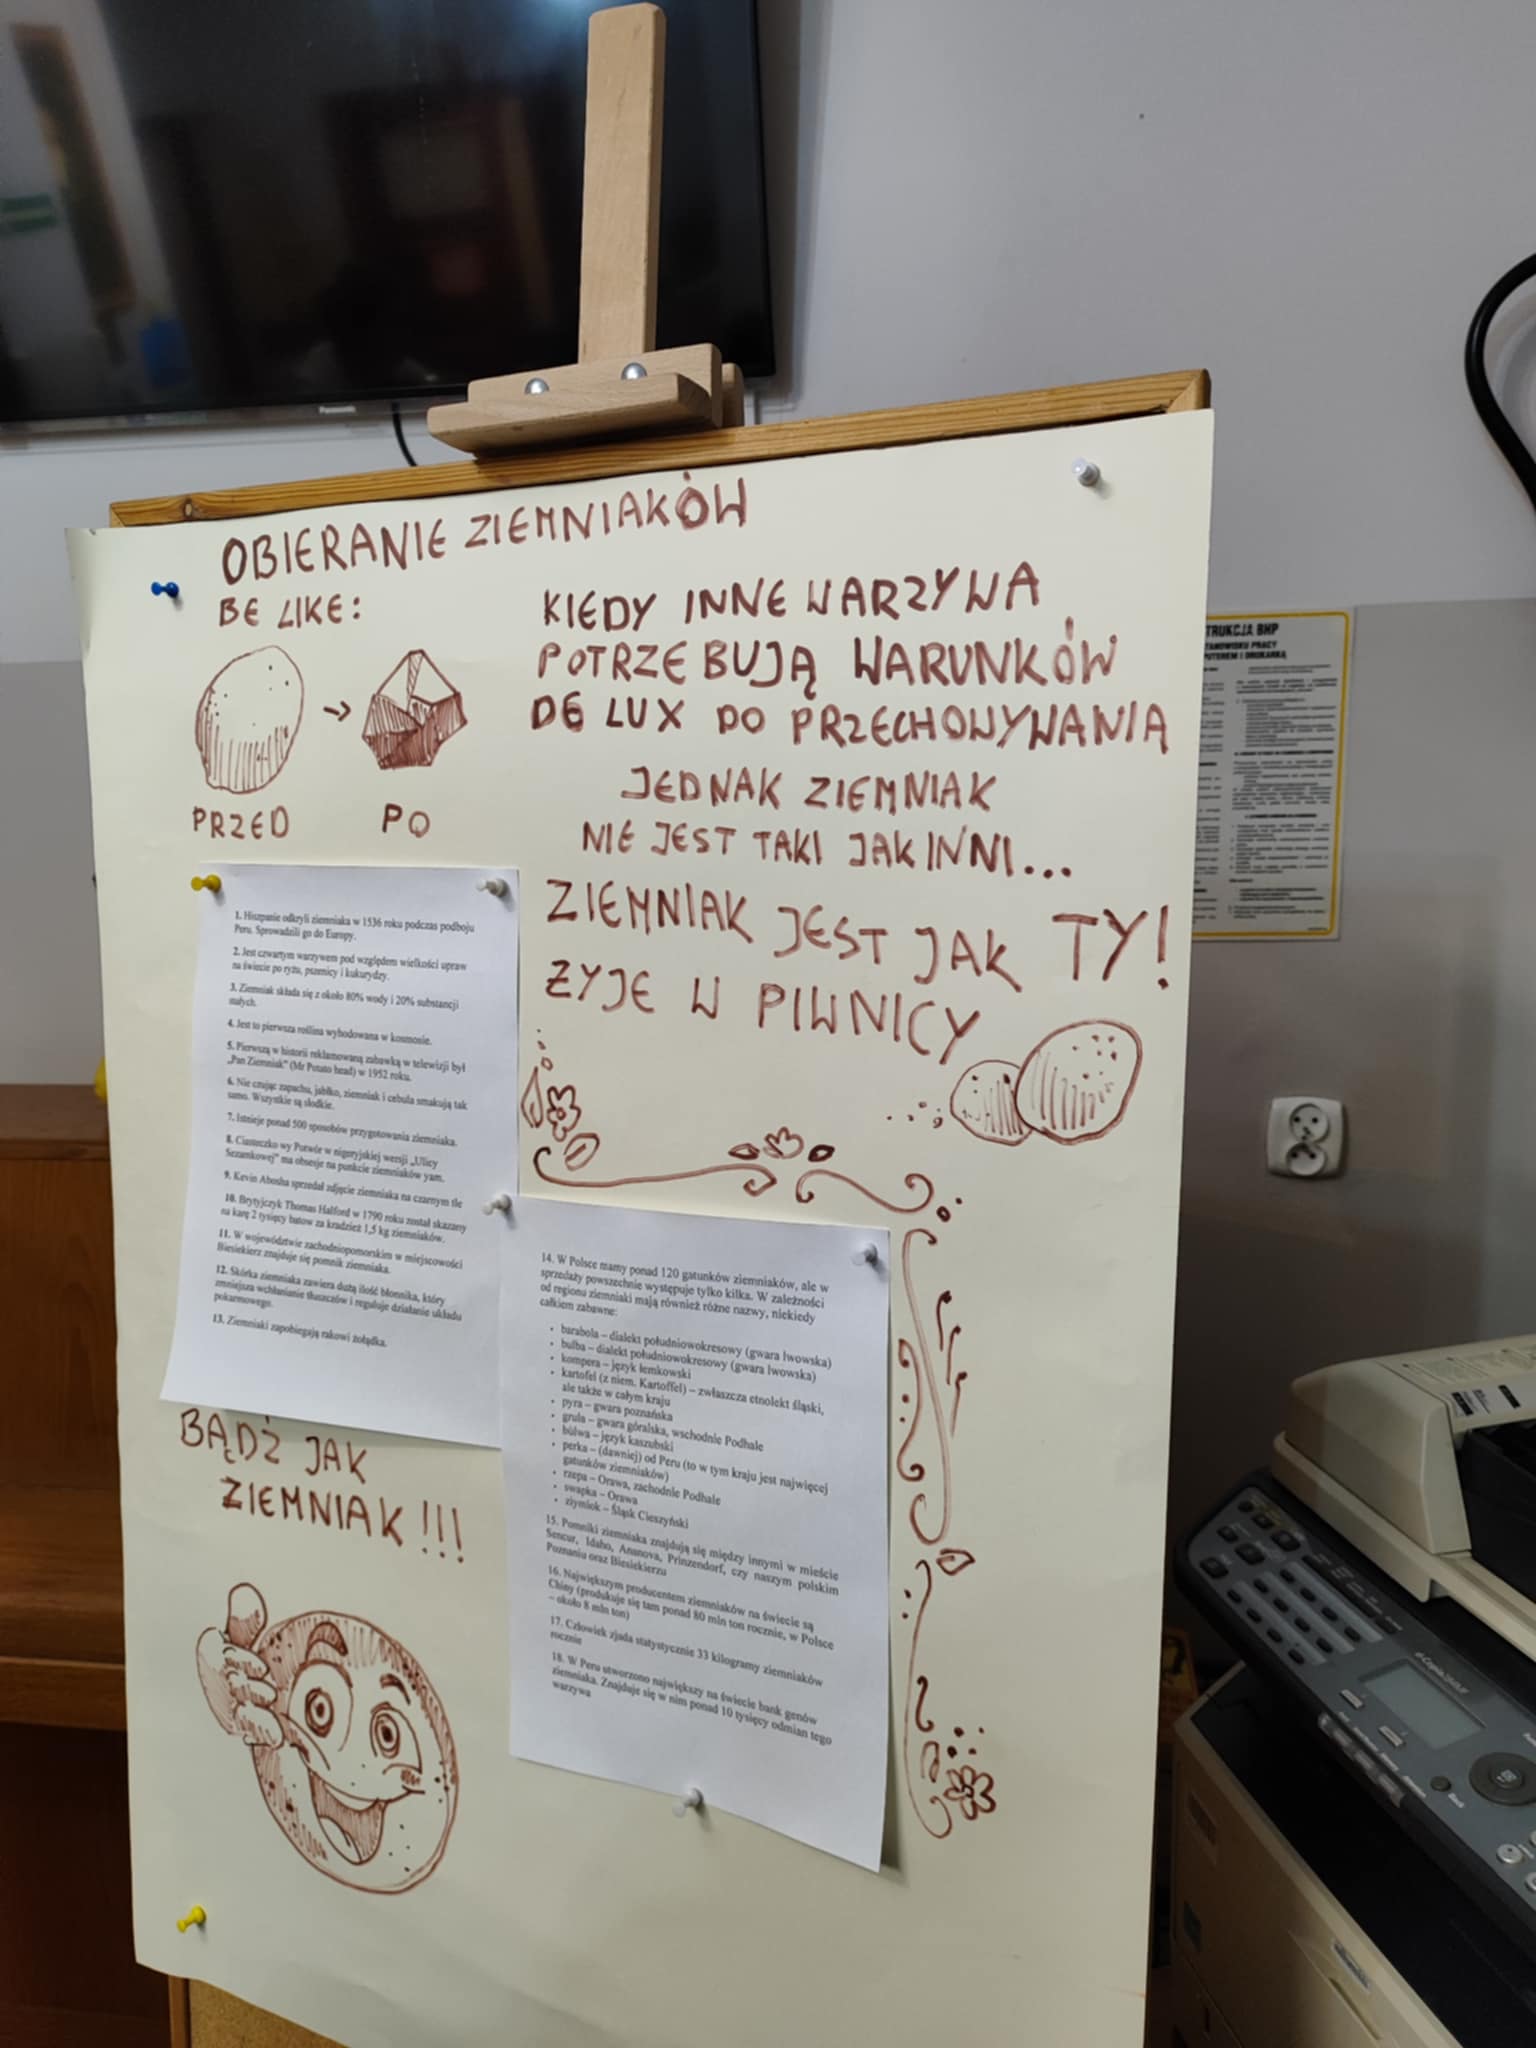 Panasonic
OBIERANIE ZIEMNIAKÓW
BE LIKE:
PRZED
PO
KIEDY INNE WARZYWA
POTRZEBUJĄ WARUNKÓW
DE LUX DO PRZECHOWYWANIA
JEDNAK ZIEMNIAK
NIE JEST TAKI JAK INNI...
ZIEMNIAK JEST JAK TY!
ŻYJE W PIWNICY
1. Hiszpanie odkryli ziemniaka w 1536 roku podczas podboju
Peru. Sprowadzili go do Europy.
2. Jest czwartym warzywem pod względem wielkości upraw
na świecie po ryżu, pszenicy i kukurydzy.
3. Ziemniak składa się z około 80% wody i 20% substancji
stałych.
4. Jest to pierwsza roślina wyhodowana w kosmosie.
5. Pierwszą w historii reklamowaną zabawką w telewizji był
„Pan Ziemniak" (Mr Potato head) w 1952 roku.
6. Nie czując zapachu, jabłko, ziemniak i cebula smakują tak
samo. Wszystkie są słodkie.
7. Istnieje ponad 500 sposobów przygotowania ziemniaka.
8. Ciasteczko wy Potwór w nigeryjskiej wersji „Ulicy
Sezamkowej" ma obsesje na punkcie ziemniaków yam.
9. Kevin Abosha sprzedał zdjęcie ziemniaka na czarnym tle
10. Brytyjczyk Thomas Halford w 1790 roku został skazany
na karę 2 tysięcy batow za kradzież 1,5 kg ziemniaków.
11. W województwie zachodniopomorskim w miejscowości
Biesiekierz znajduje się pomnik ziemniaka.
12. Skórka ziemniaka zawiera dużą ilość błonnika, który
zmniejsza wchłanianie tłuszczów i reguluje działanie układu
pokarmowego.
13. Ziemniaki zapobiegają rakowi żołądka.
14. W Polsce mamy ponad 120 gatunków ziemniaków, ale w
sprzedaży powszechnie występuje tylko kilka. W zależności
od regionu ziemniaki mają również różne nazwy, niekiedy
całkiem zabawne:
• barabola – dialekt południowokresowy (gwara lwowska)
• bulba – dialekt południowokresowy (gwara lwowska)
• kompera – język łemkowski
• kartofel (z niem. Kartoffel) – zwłaszcza etnolekt śląski,
ale także w całym kraju
• pyra – gwara poznańska
• grula – gwara góralska, wschodnie Podhale
• bùlwa – język kaszubski
• perka – (dawniej) od Peru (to w tym kraju jest najwięcej
gatunków ziemniaków)
• rzepa – Orawa, zachodnie Podhale
• swapka – Orawa
• ziymiok – Śląsk Cieszyński
15. Pomniki ziemniaka znajdują się między innymi w mieście
Sencur, Idaho, Ananova, Prinzendorf, czy naszym polskim
Poznaniu oraz Biesiekierzu
16. Największym producentem ziemniaków na świecie są
Chiny (produkuje się tam ponad 80 mln ton rocznie, w Polsce
– około 8 mln ton)
17. Człowiek zjada statystycznie 33 kilogramy ziemniaków
rocznie
18. W Peru utworzono największy na świecie bank genów
ziemniaka. Znajduje się w nim ponad 10 tysięcy odmian tego
warzywa
BĄDŹ JAK
ZIEMNIAK!!!
TRUKCJA BHP